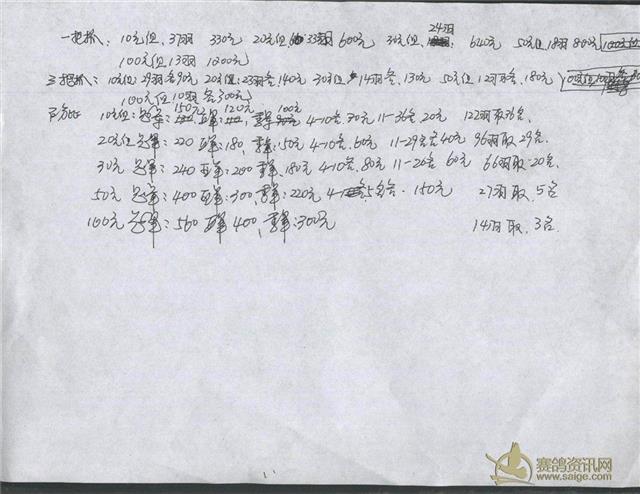 一把抓: 10元组、37羽 330元 20元组 33羽 600元 30元组 24羽 640元 50元组 18羽 800元
100元组 13羽 1200元
三把抓: 10元组: 29羽各90元 20元组: 23羽各140元 30元组 14羽各、130元 50元组 12羽各、180元
100元组 10羽各300元
百分比 10元组: 冠军: 150元 亚军: 120元, 季军: 100元 4-10名、30元 11-36名 20元 122羽取36名
20元组 冠军: 220 亚军: 180, 季军: 150元 4-10名、60元 11-29名各40元 96羽取29名.
30元 冠军: 240 亚军: 200 季军: 180元 4-10名、80元 11-20名 60元 66羽取: 20名
50元 冠军: 400 亚军: 300 季军: 220元 4-5名各. 150元 27羽取 5名
100元 冠军: 560 亚军 400, 季军: 300元 14羽取. 3名.
赛鸽资讯网
www.saige.com